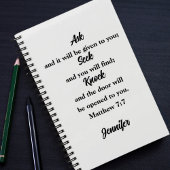 Ask
and it will be given to you;
Seek
and you will find;
Knock
and the door will
be opened to you.
Matthew 7:7
Jennifer